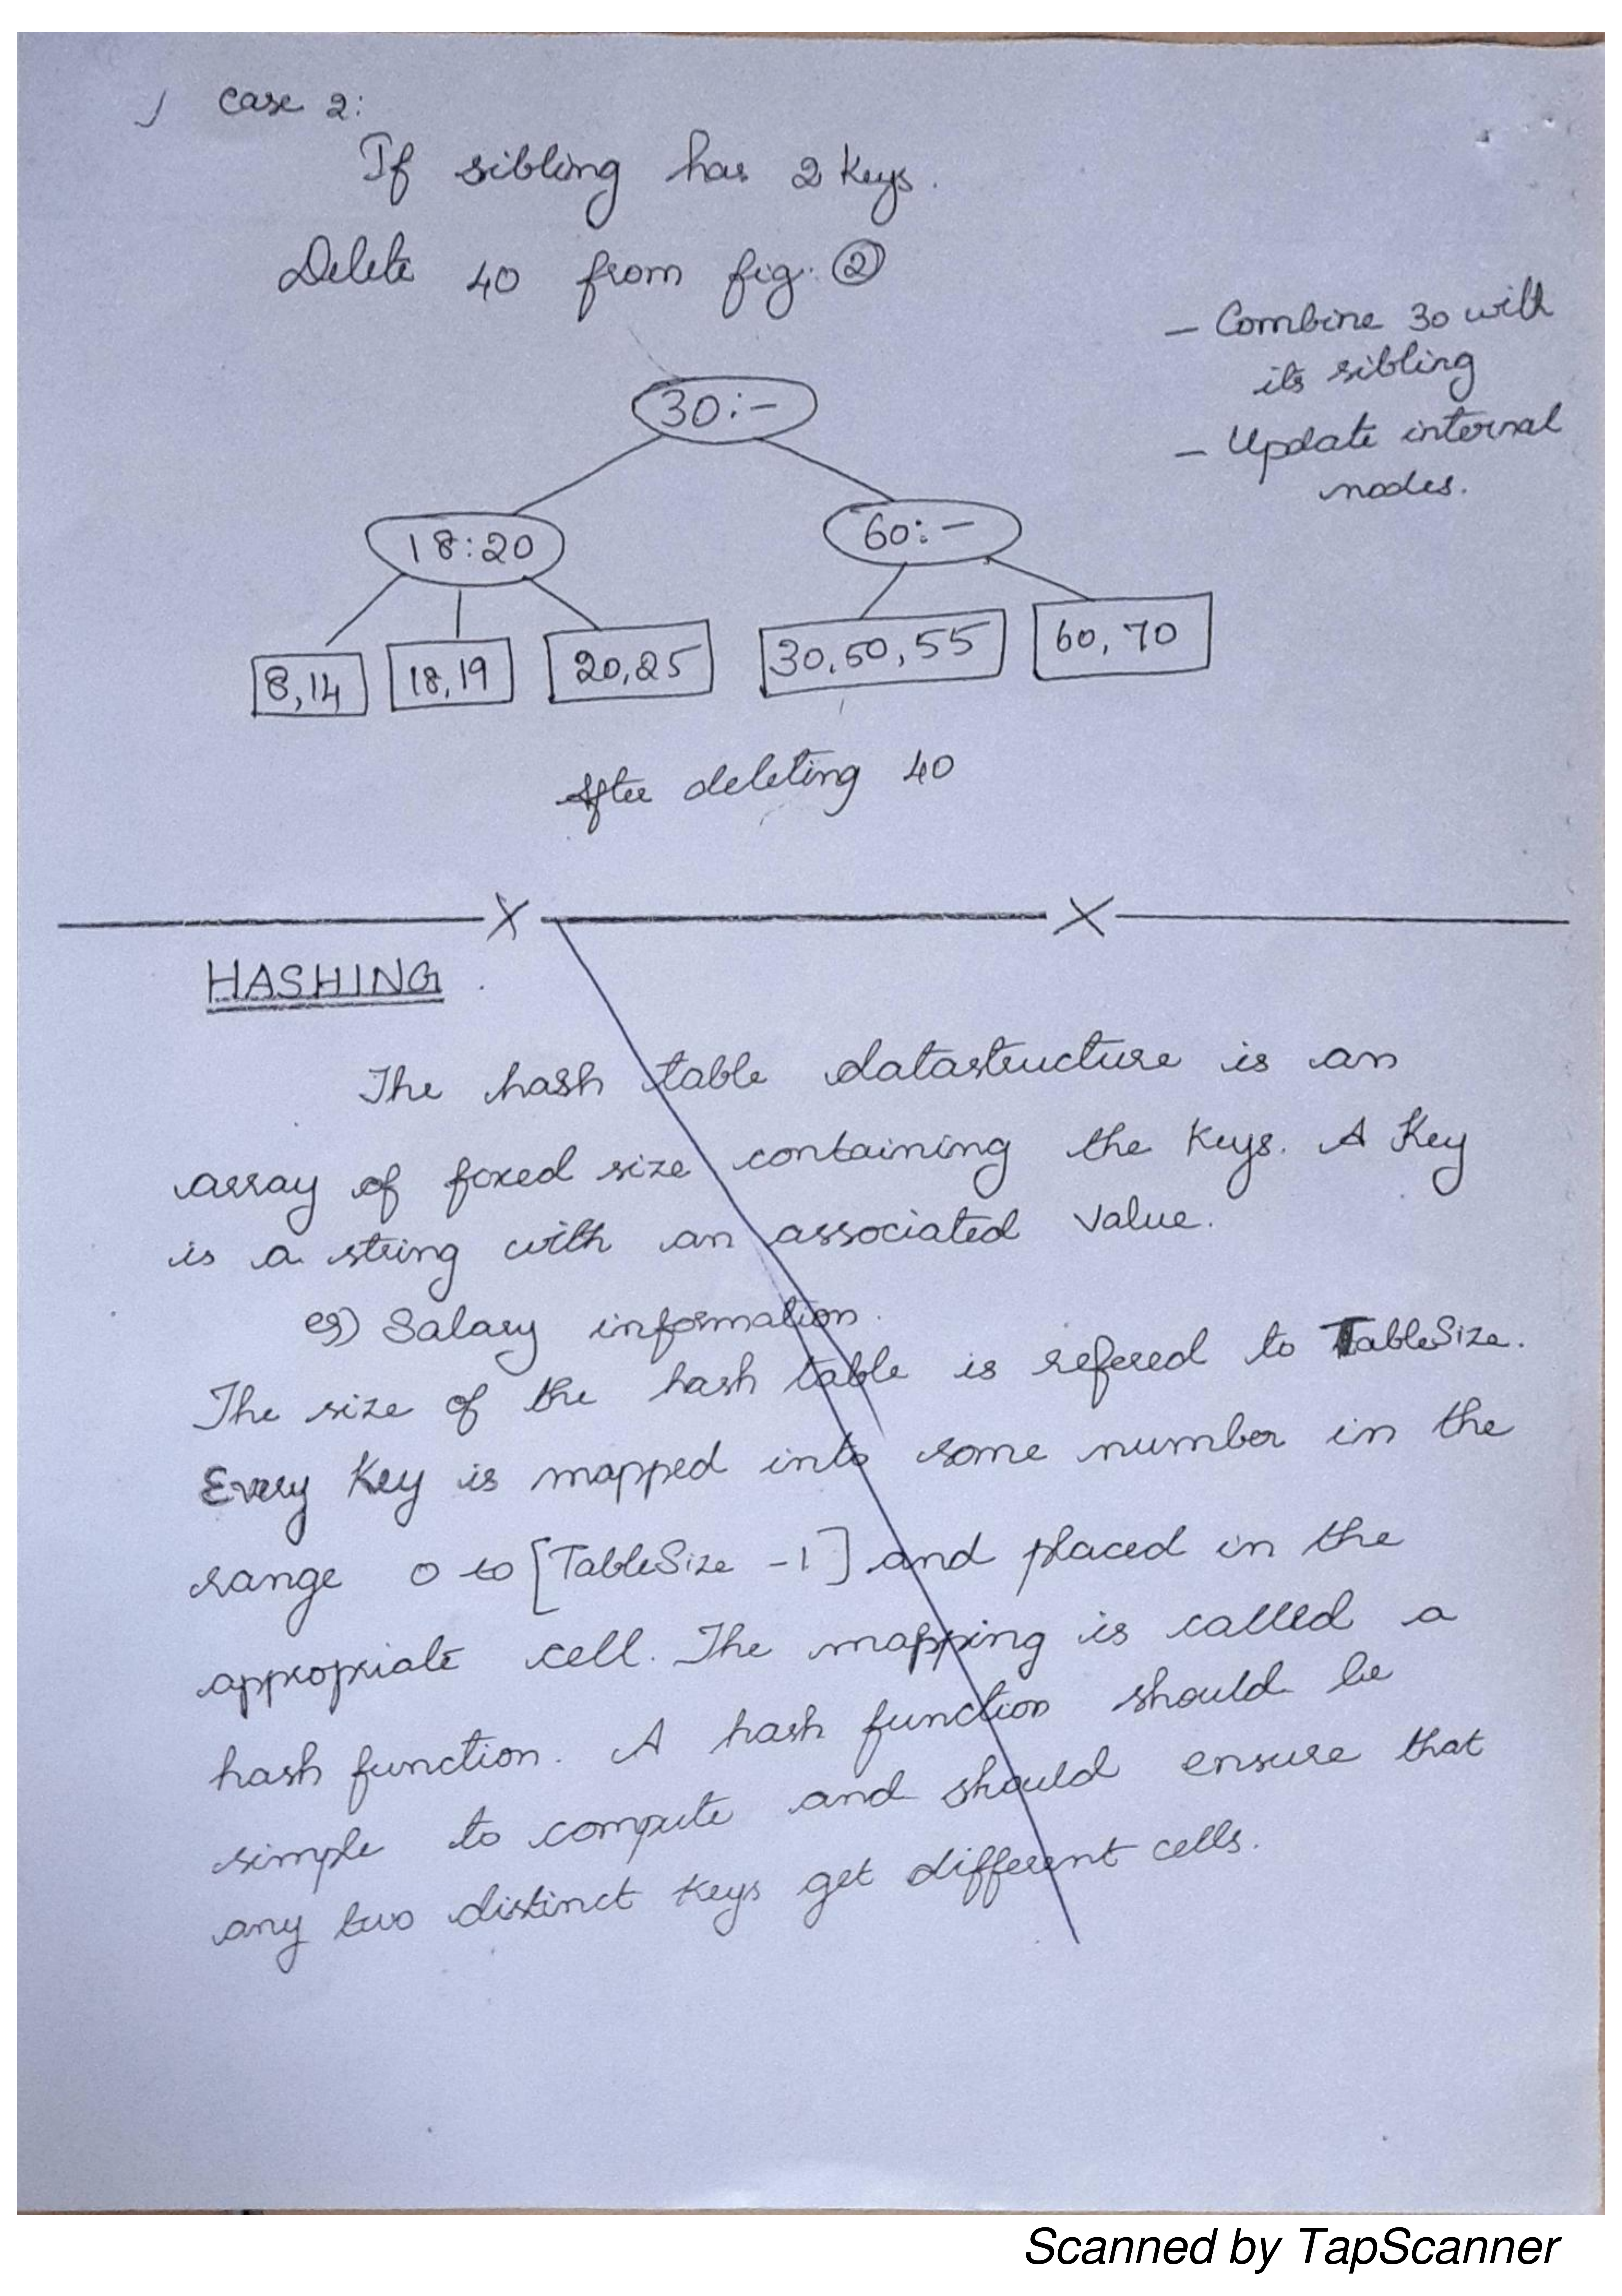 Case 2:
If sibling has 2 Keys.
Delete 40 from fig. ②
— Combine 30 with
its sibling
— Update internal
nodes.
30:-
18:20
60:-
8,14
18,19
20,25
30,50,55
60,70
After deleting 40
HASHING
The hash table datastructure is an
array of fixed size containing the Keys. A Key
is a string with an associated Value.
eg) Salary information.
The size of the hash table is refered to TableSize.
Every Key is mapped into some number in the
range 0 to [TableSize -1] and placed in the
appropriate cell. The mapping is called a
hash function. A hash function should be
simple to compute and should ensure that
any two distinct Keys get different cells.
Scanned by TapScanner